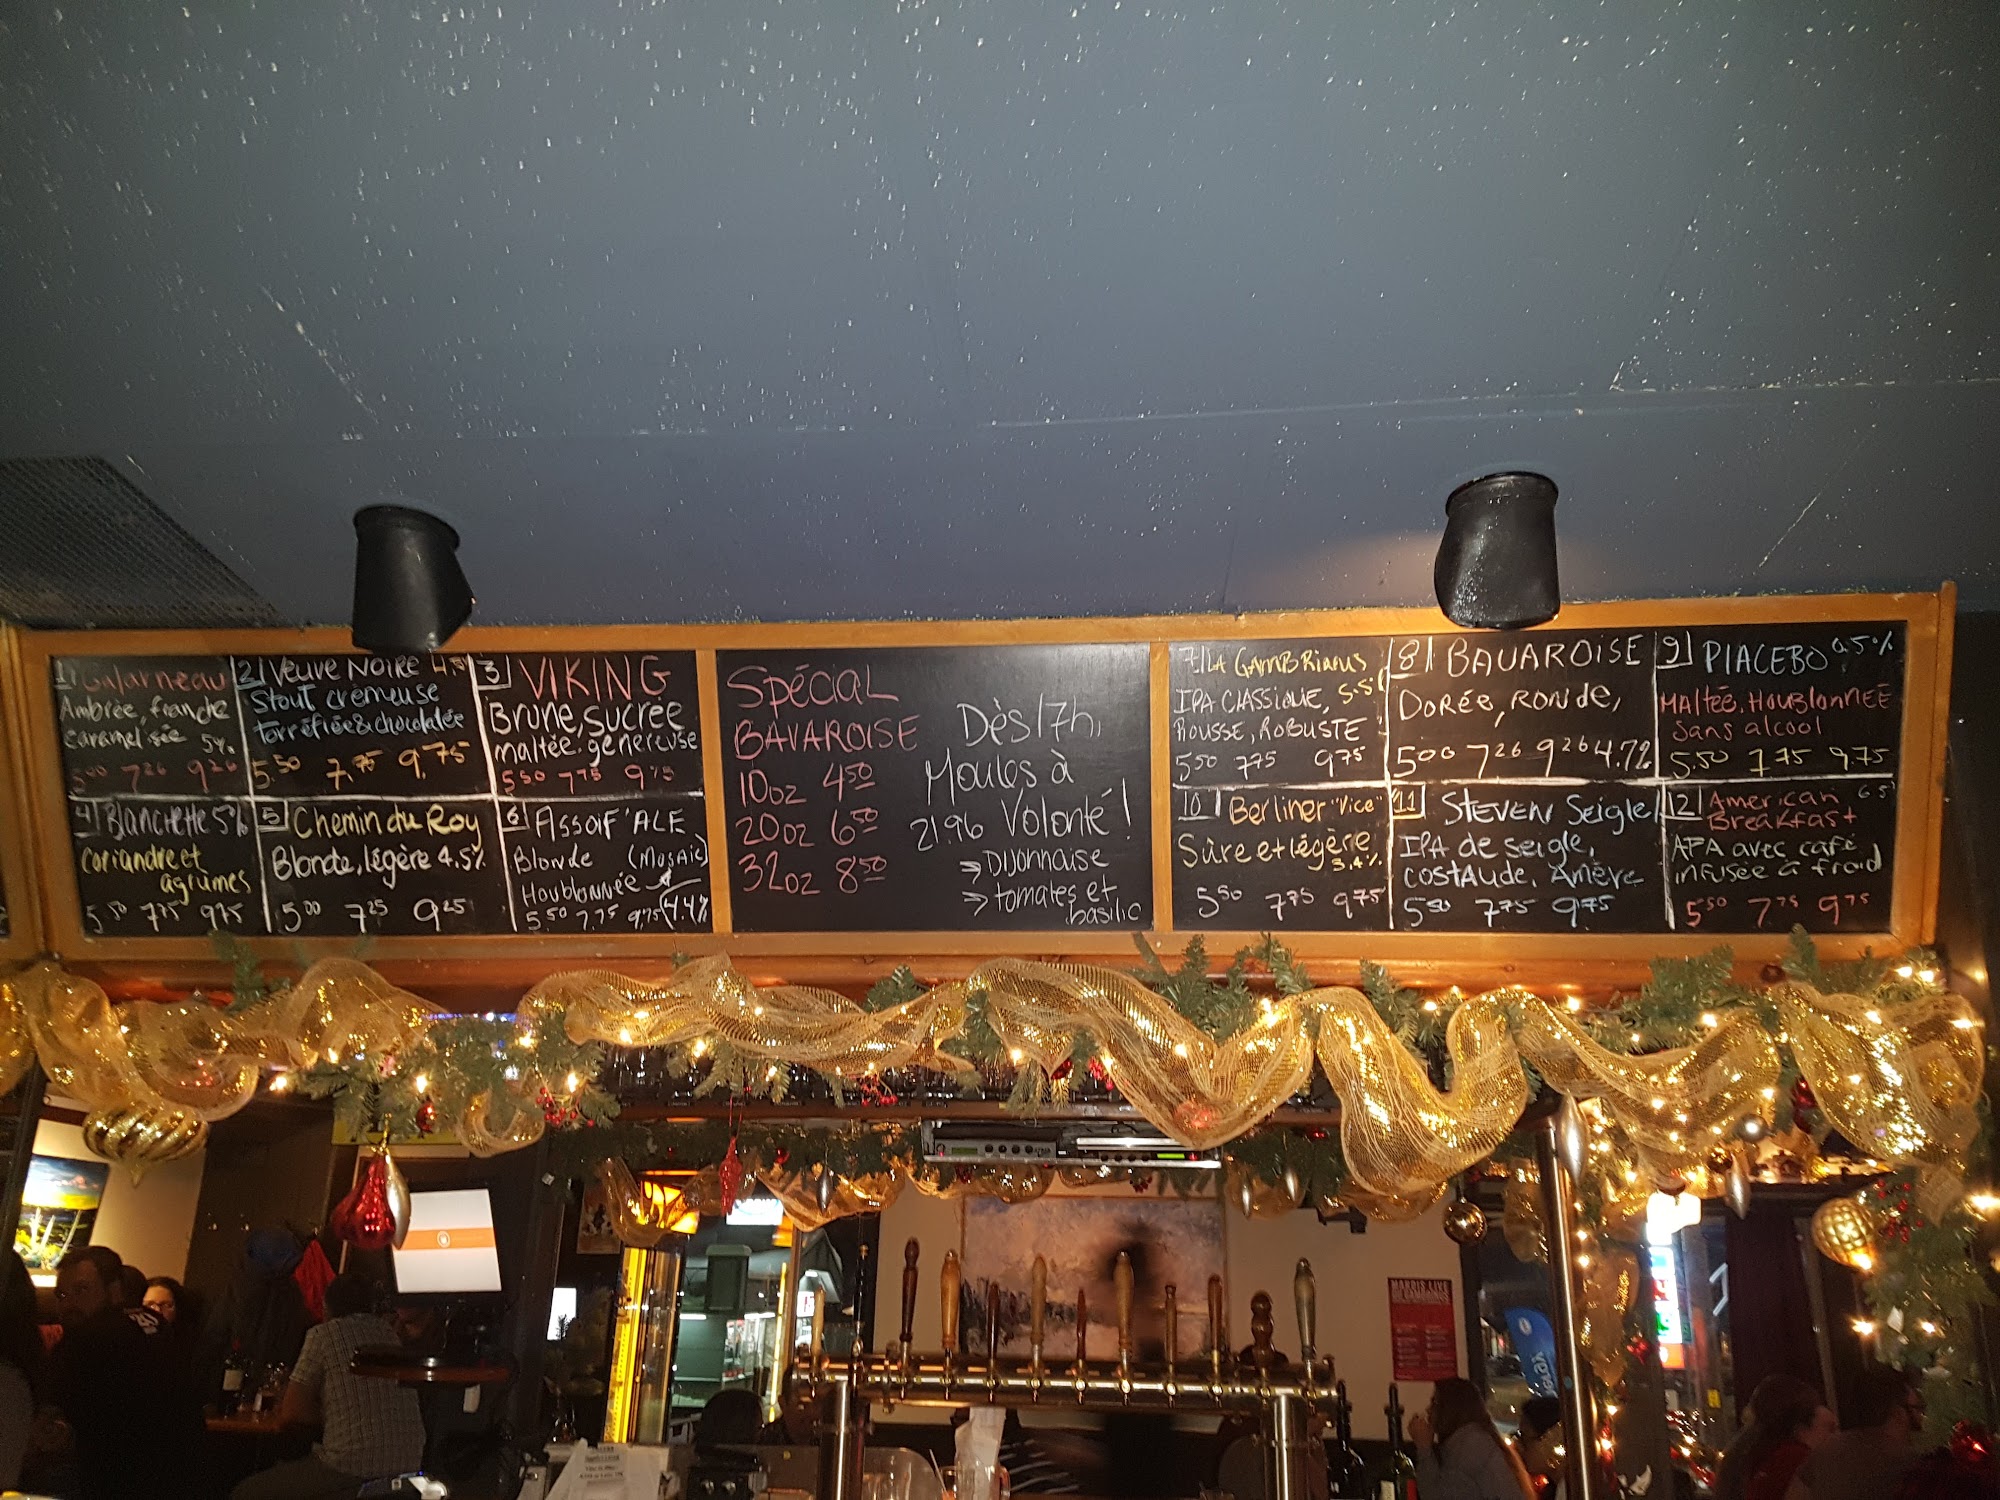 1 Galarneau
Ambrée, franche
caramelisée 5%
5.00 7.26 9.26
2 Veuve Noire
Stout crémeuse
torréfiée & chocolatée
5.50 7.75 9.75
3 VIKING
Brune, sucrée
maltée, généreuse
5.50 7.75 9.75
4 Blanchette 5%
Coriandre et
agrumes
5.50 7.75 9.75
5 Chemin du Roy
Blonde, légère 4.5%
5.00 7.25 9.25
6 ASSOIF'ALE
Blonde (Mosaic)
Houblonnée
5.50 7.75 9.75 4.4%
SPÉCIAL
BAVAROISE
10oz 4.50
20oz 6.50
32oz 8.50
Dès 17h,
Moules à
Volonté!
21.96
→ Dijonnaise
→ tomates et
basilic
7 LA GAMBRINUS
IPA CLASSIQUE, 5.5%
ROUSSE, ROBUSTE
5.50 7.75 9.75
8 BAVAROISE
DORÉE, RONDE,
5.00 7.26 9.26 4.7%
9 PLACEBO 0.5%
MALTÉE, HOUBLONNÉE
Sans alcool
5.50 7.75 9.75
10 Berliner "Vice"
Sûre et légère
3.4%
5.50 7.75 9.75
11 STEVEN Seigle
IPA de seigle,
costaude, Amère
5.50 7.75 9.75
12 American 6.5
Breakfast
APA avec café
infusée à froid
5.50 7.75 9.75